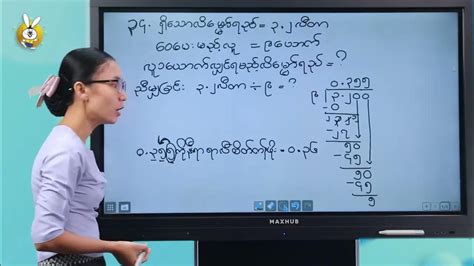 ၃၄. ရှိသောလိမ္မော်ရည် = ၃.၂ လီတာ
ဝေပေးမည့်လူ = ၉ ယောက်
လူ ၁ ယောက်လျှင်ရမည့်လိမ္မော်ရည် = ?
ညီမျှခြင်း ၃.၂ လီတာ ÷ ၉ = ?
၀.၃၅၅
၉ ၃.၂၀၀
-၀
-၂၇
၅၀
-၄၅
၅၀
-၄၅
၅
= ၀.၃၆
MAXHUB